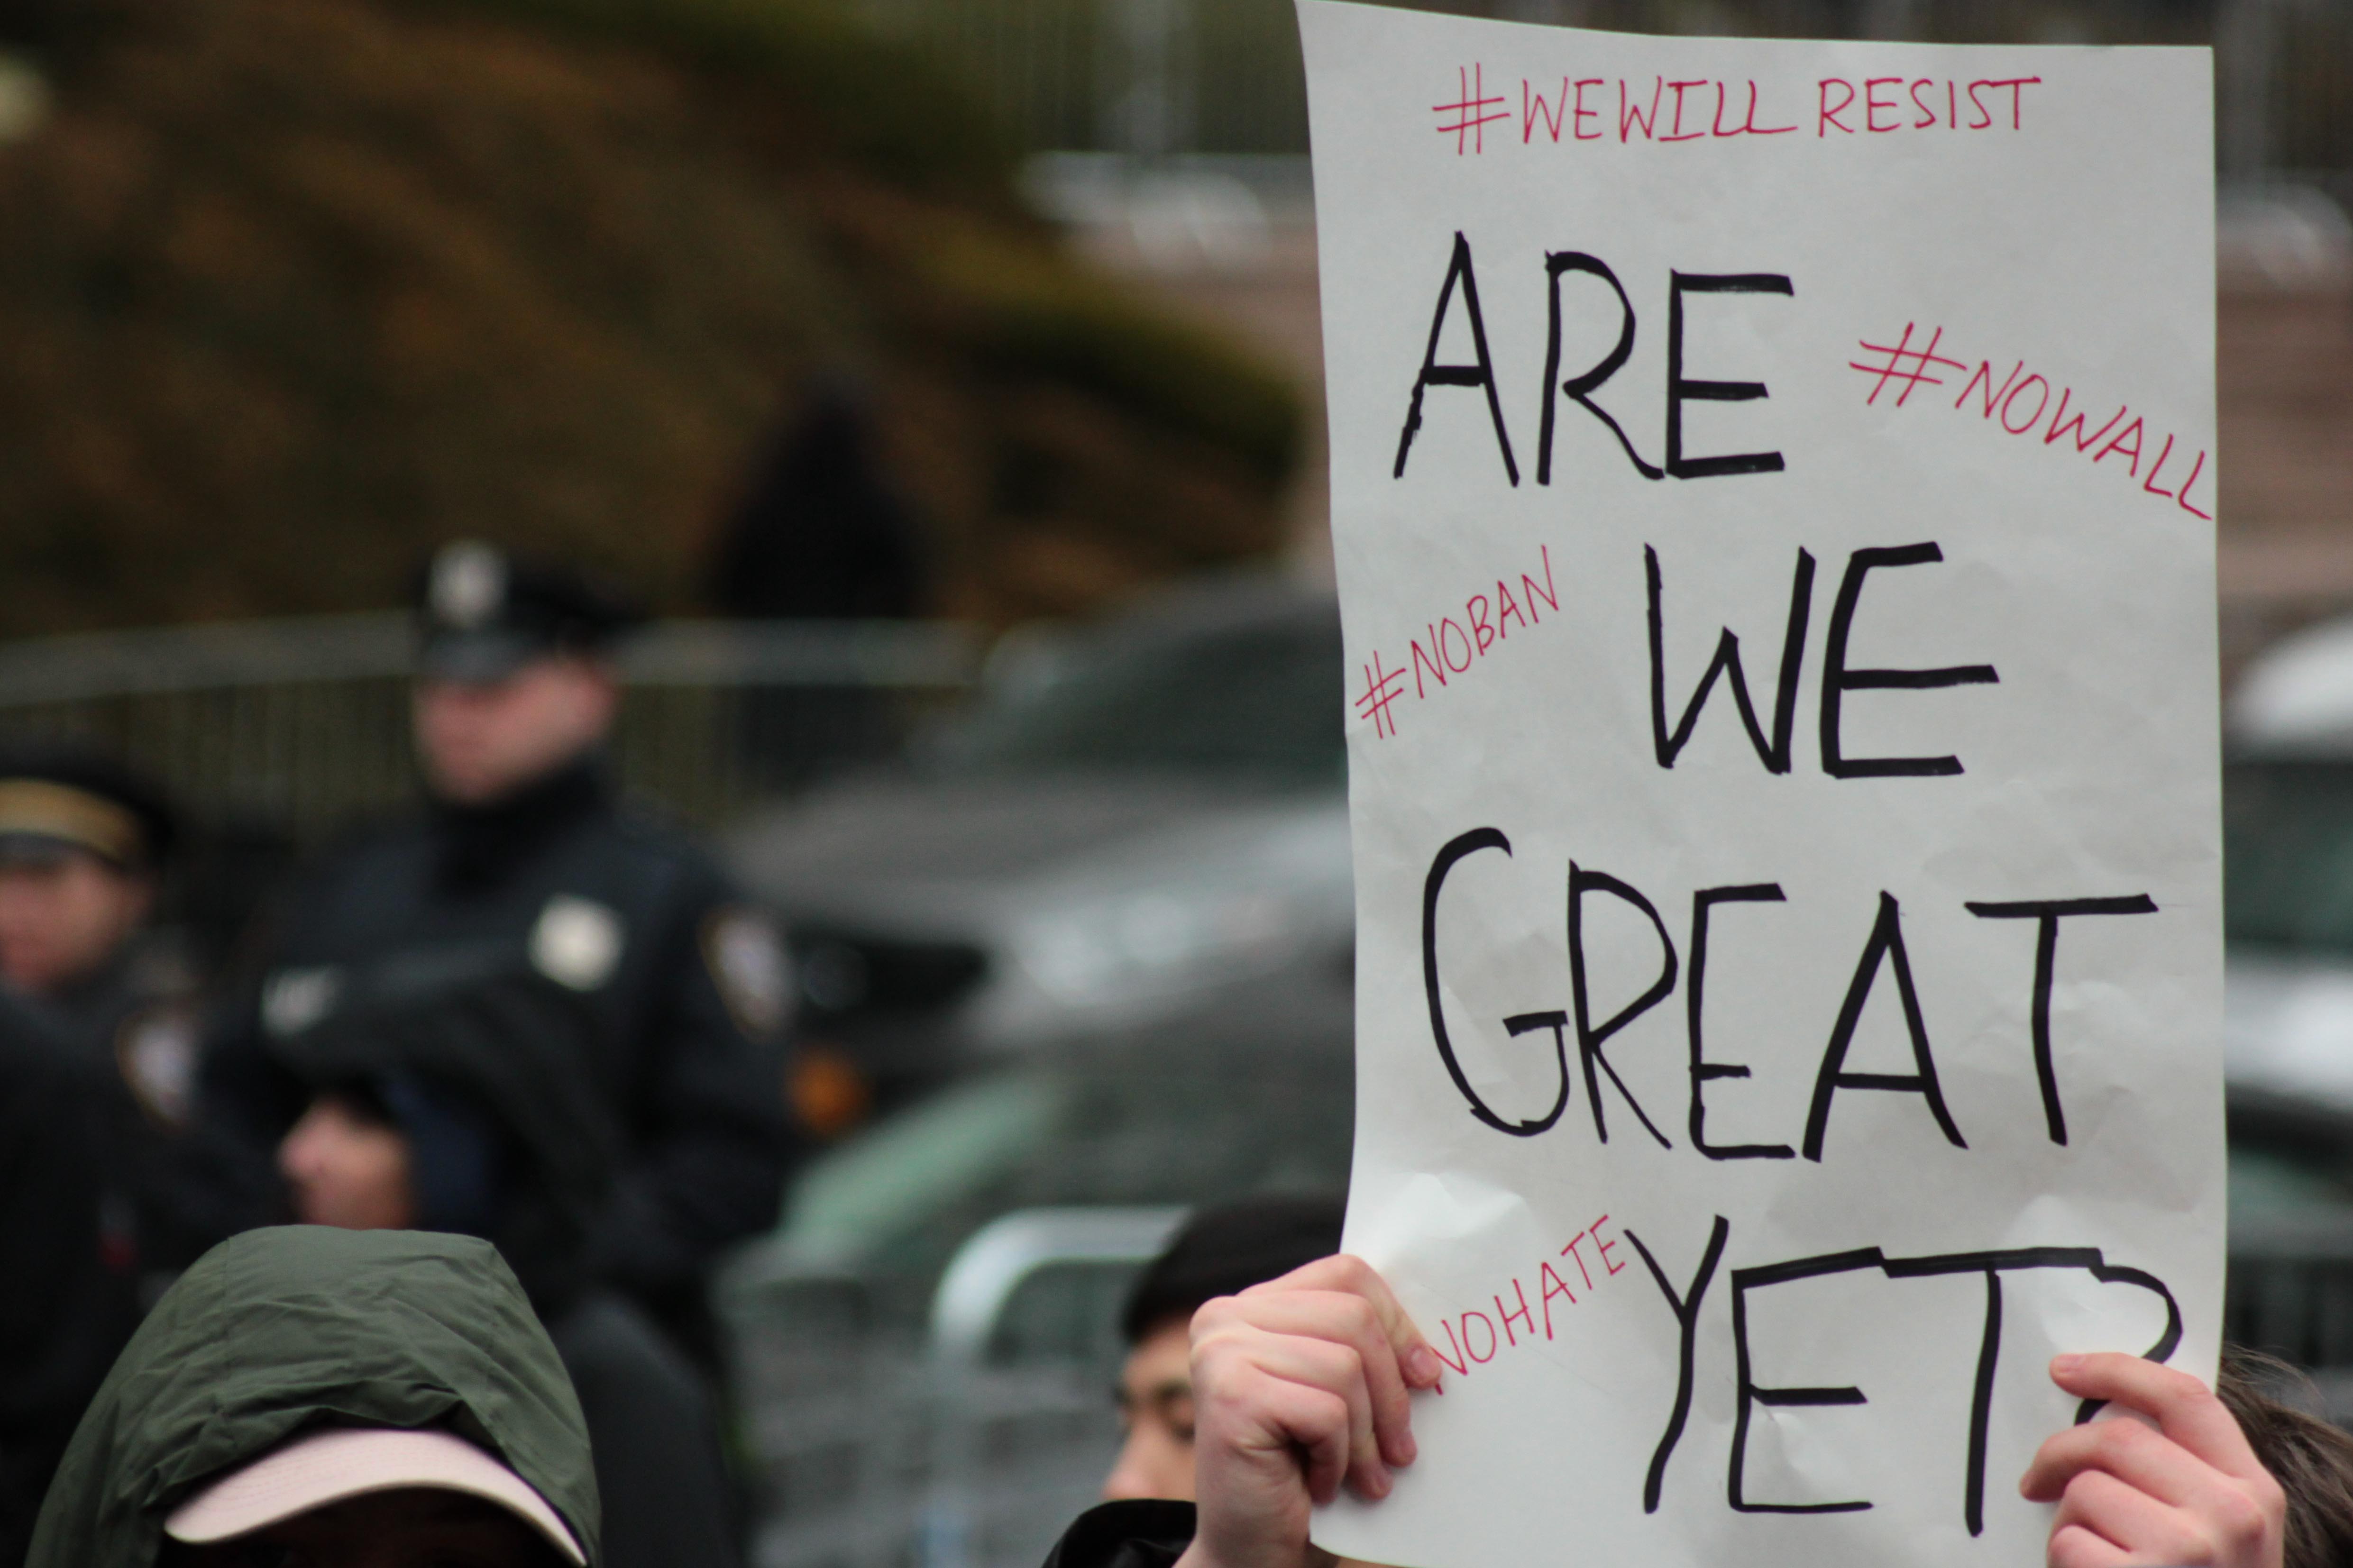 #WEWILL RESIST
ARE
#NOWALL
#NOBAN
WE
GREAT
NOHATE
YET?